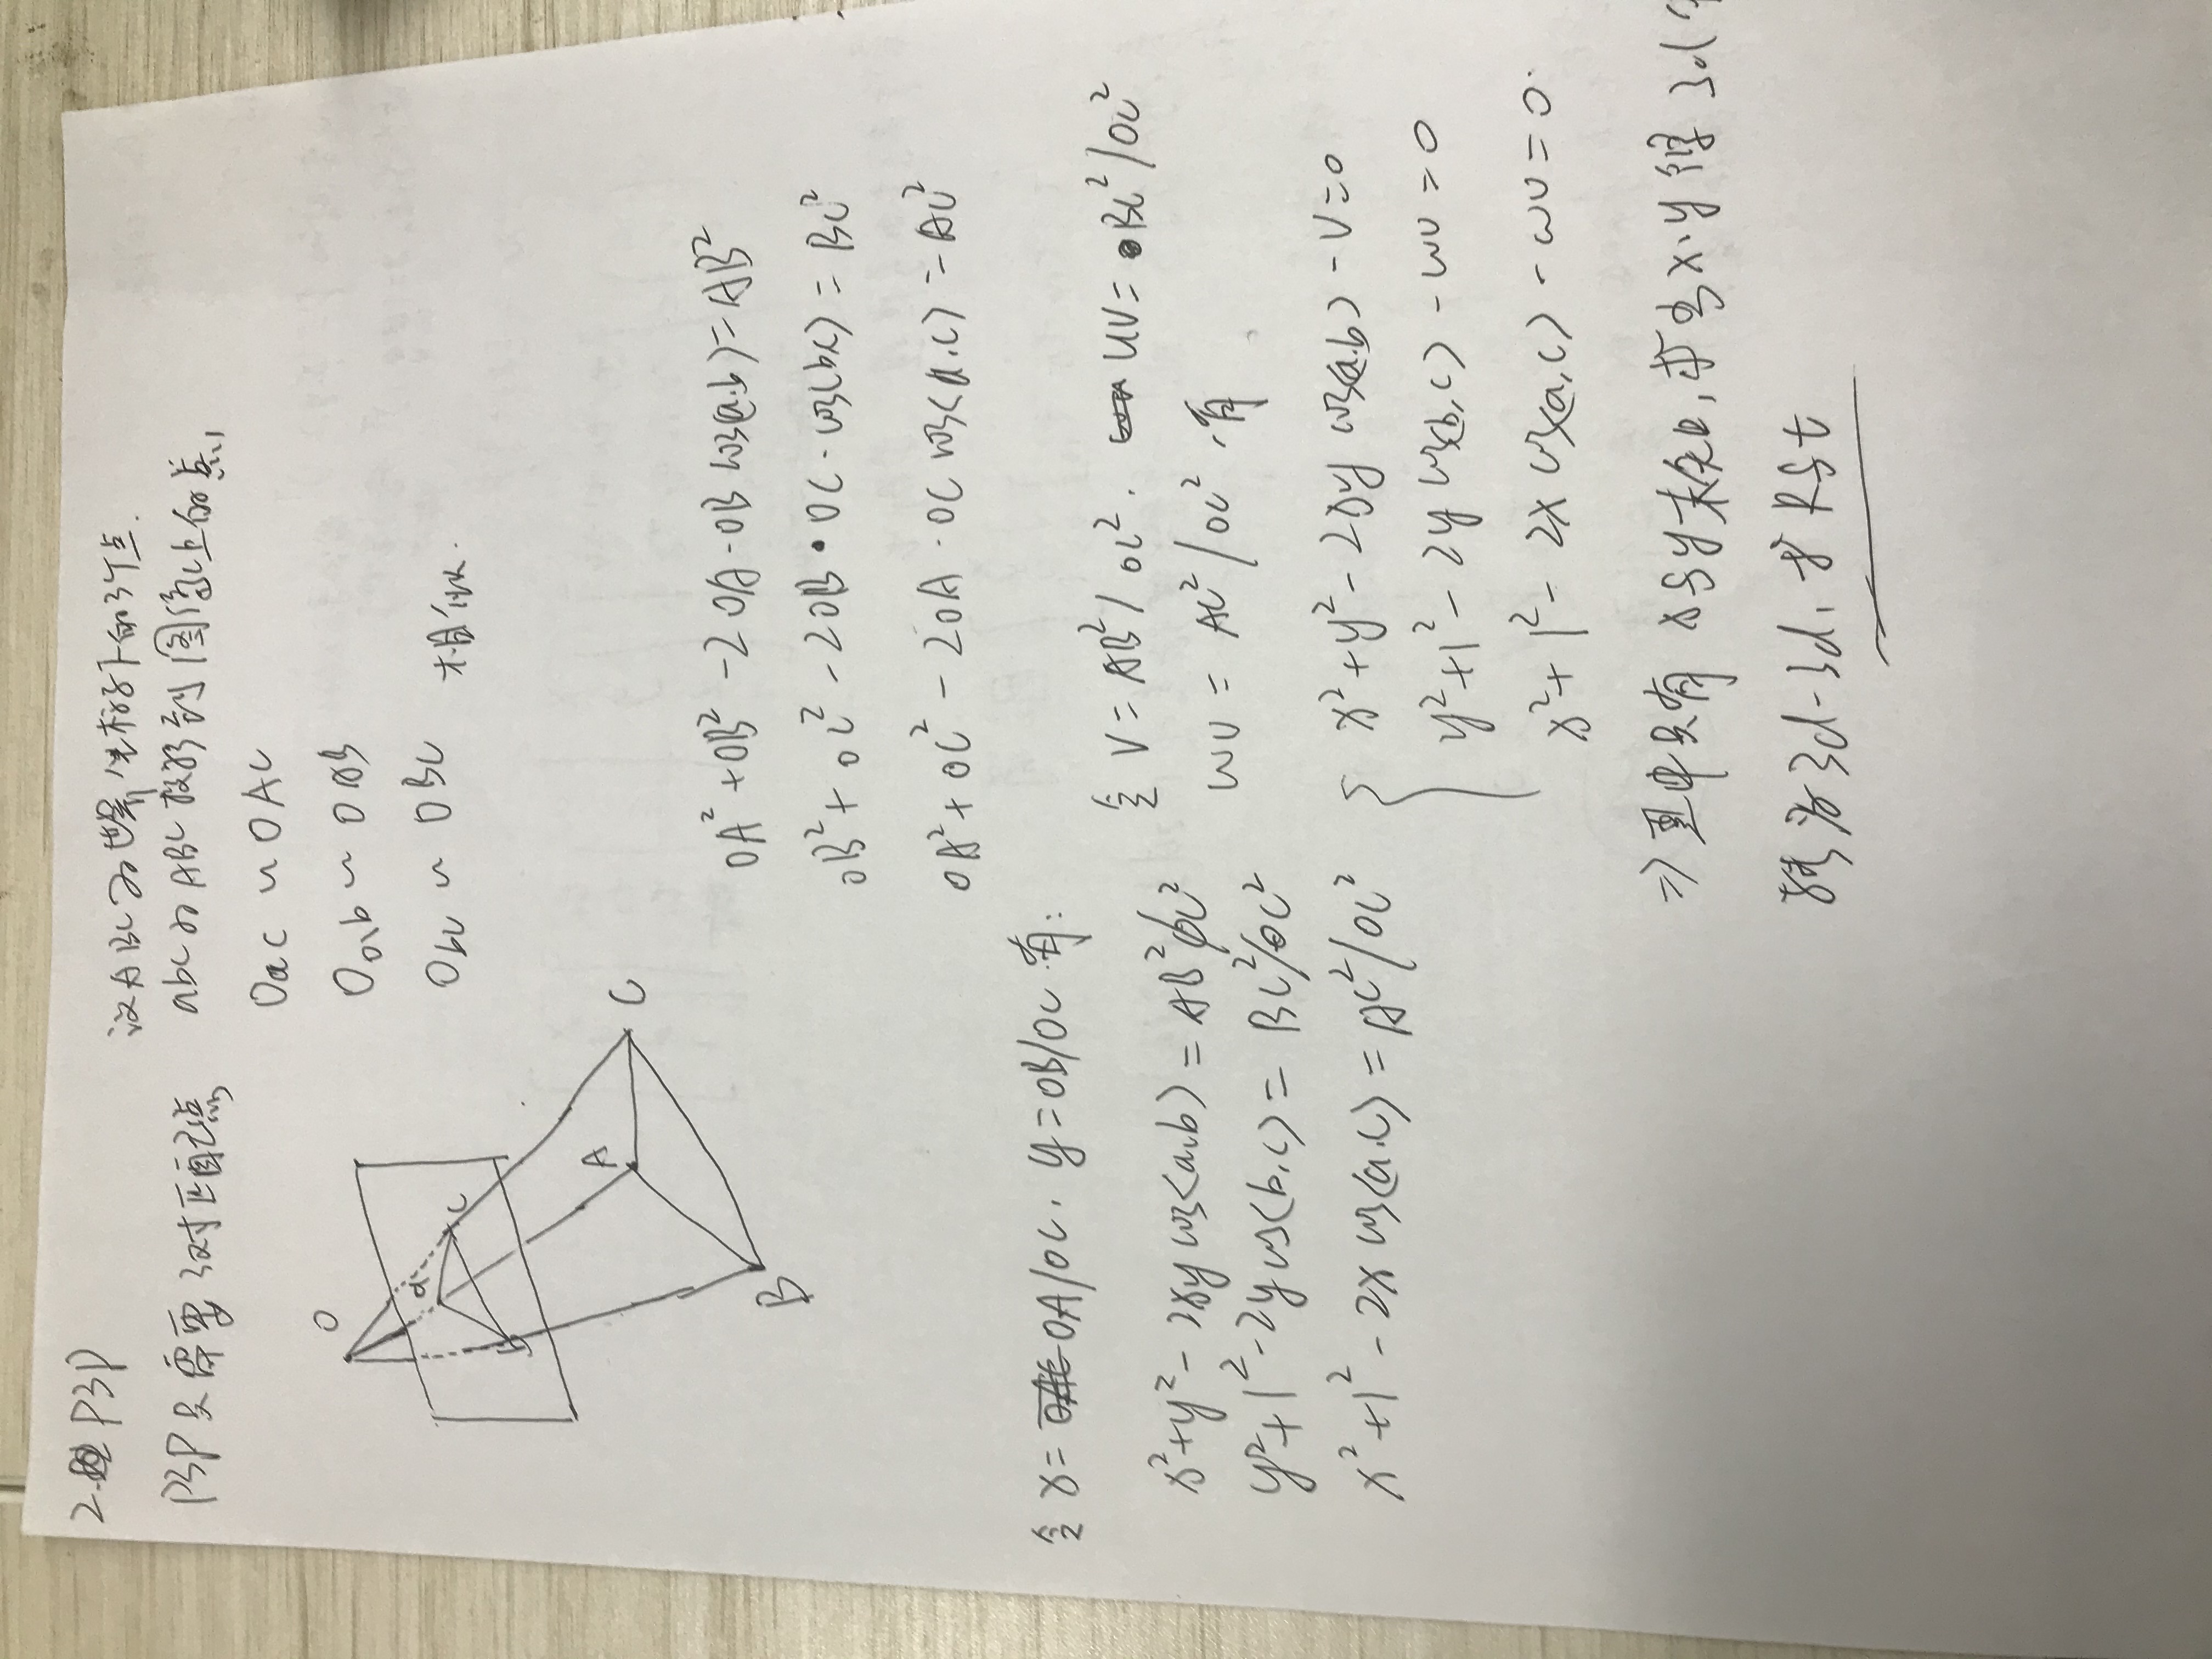 2. P3P
P3P只需要3对匹配点
设ABC为世界坐标系下的3个点.
abc为ABC投影到图像上的点,
Oac ∽ OAC
Oab ∽ OAB
Obc ∽ OBC 相似.
O
a
c
b
A
C
B
OA² + OB² - 2OA·OB cos(a,b) = AB²
OB² + OC² - 2OB·OC·cos(b,c) = BC²
OA² + OC² - 2OA·OC cos(a,c) = AC²
令 x = OA/OC, y = OB/OC 有:
x² + y² - 2xy cos(a,b) = AB²/OC²
y² + 1² - 2y cos(b,c) = BC²/OC²
x² + 1² - 2x cos(a,c) = AC²/OC²
令 V = AB²/OC². UV = BC²/OC²
wv = AC²/OC², 有
x² + y² - 2xy cos(a,b) - V = 0
y² + 1² - 2y cos(b,c) - wv = 0
x² + 1² - 2x cos(a,c) - wv = 0.
⇒ 里中只有 x与y未知, 求出x,y 得 3d
转为3d-3d, 求 R与t